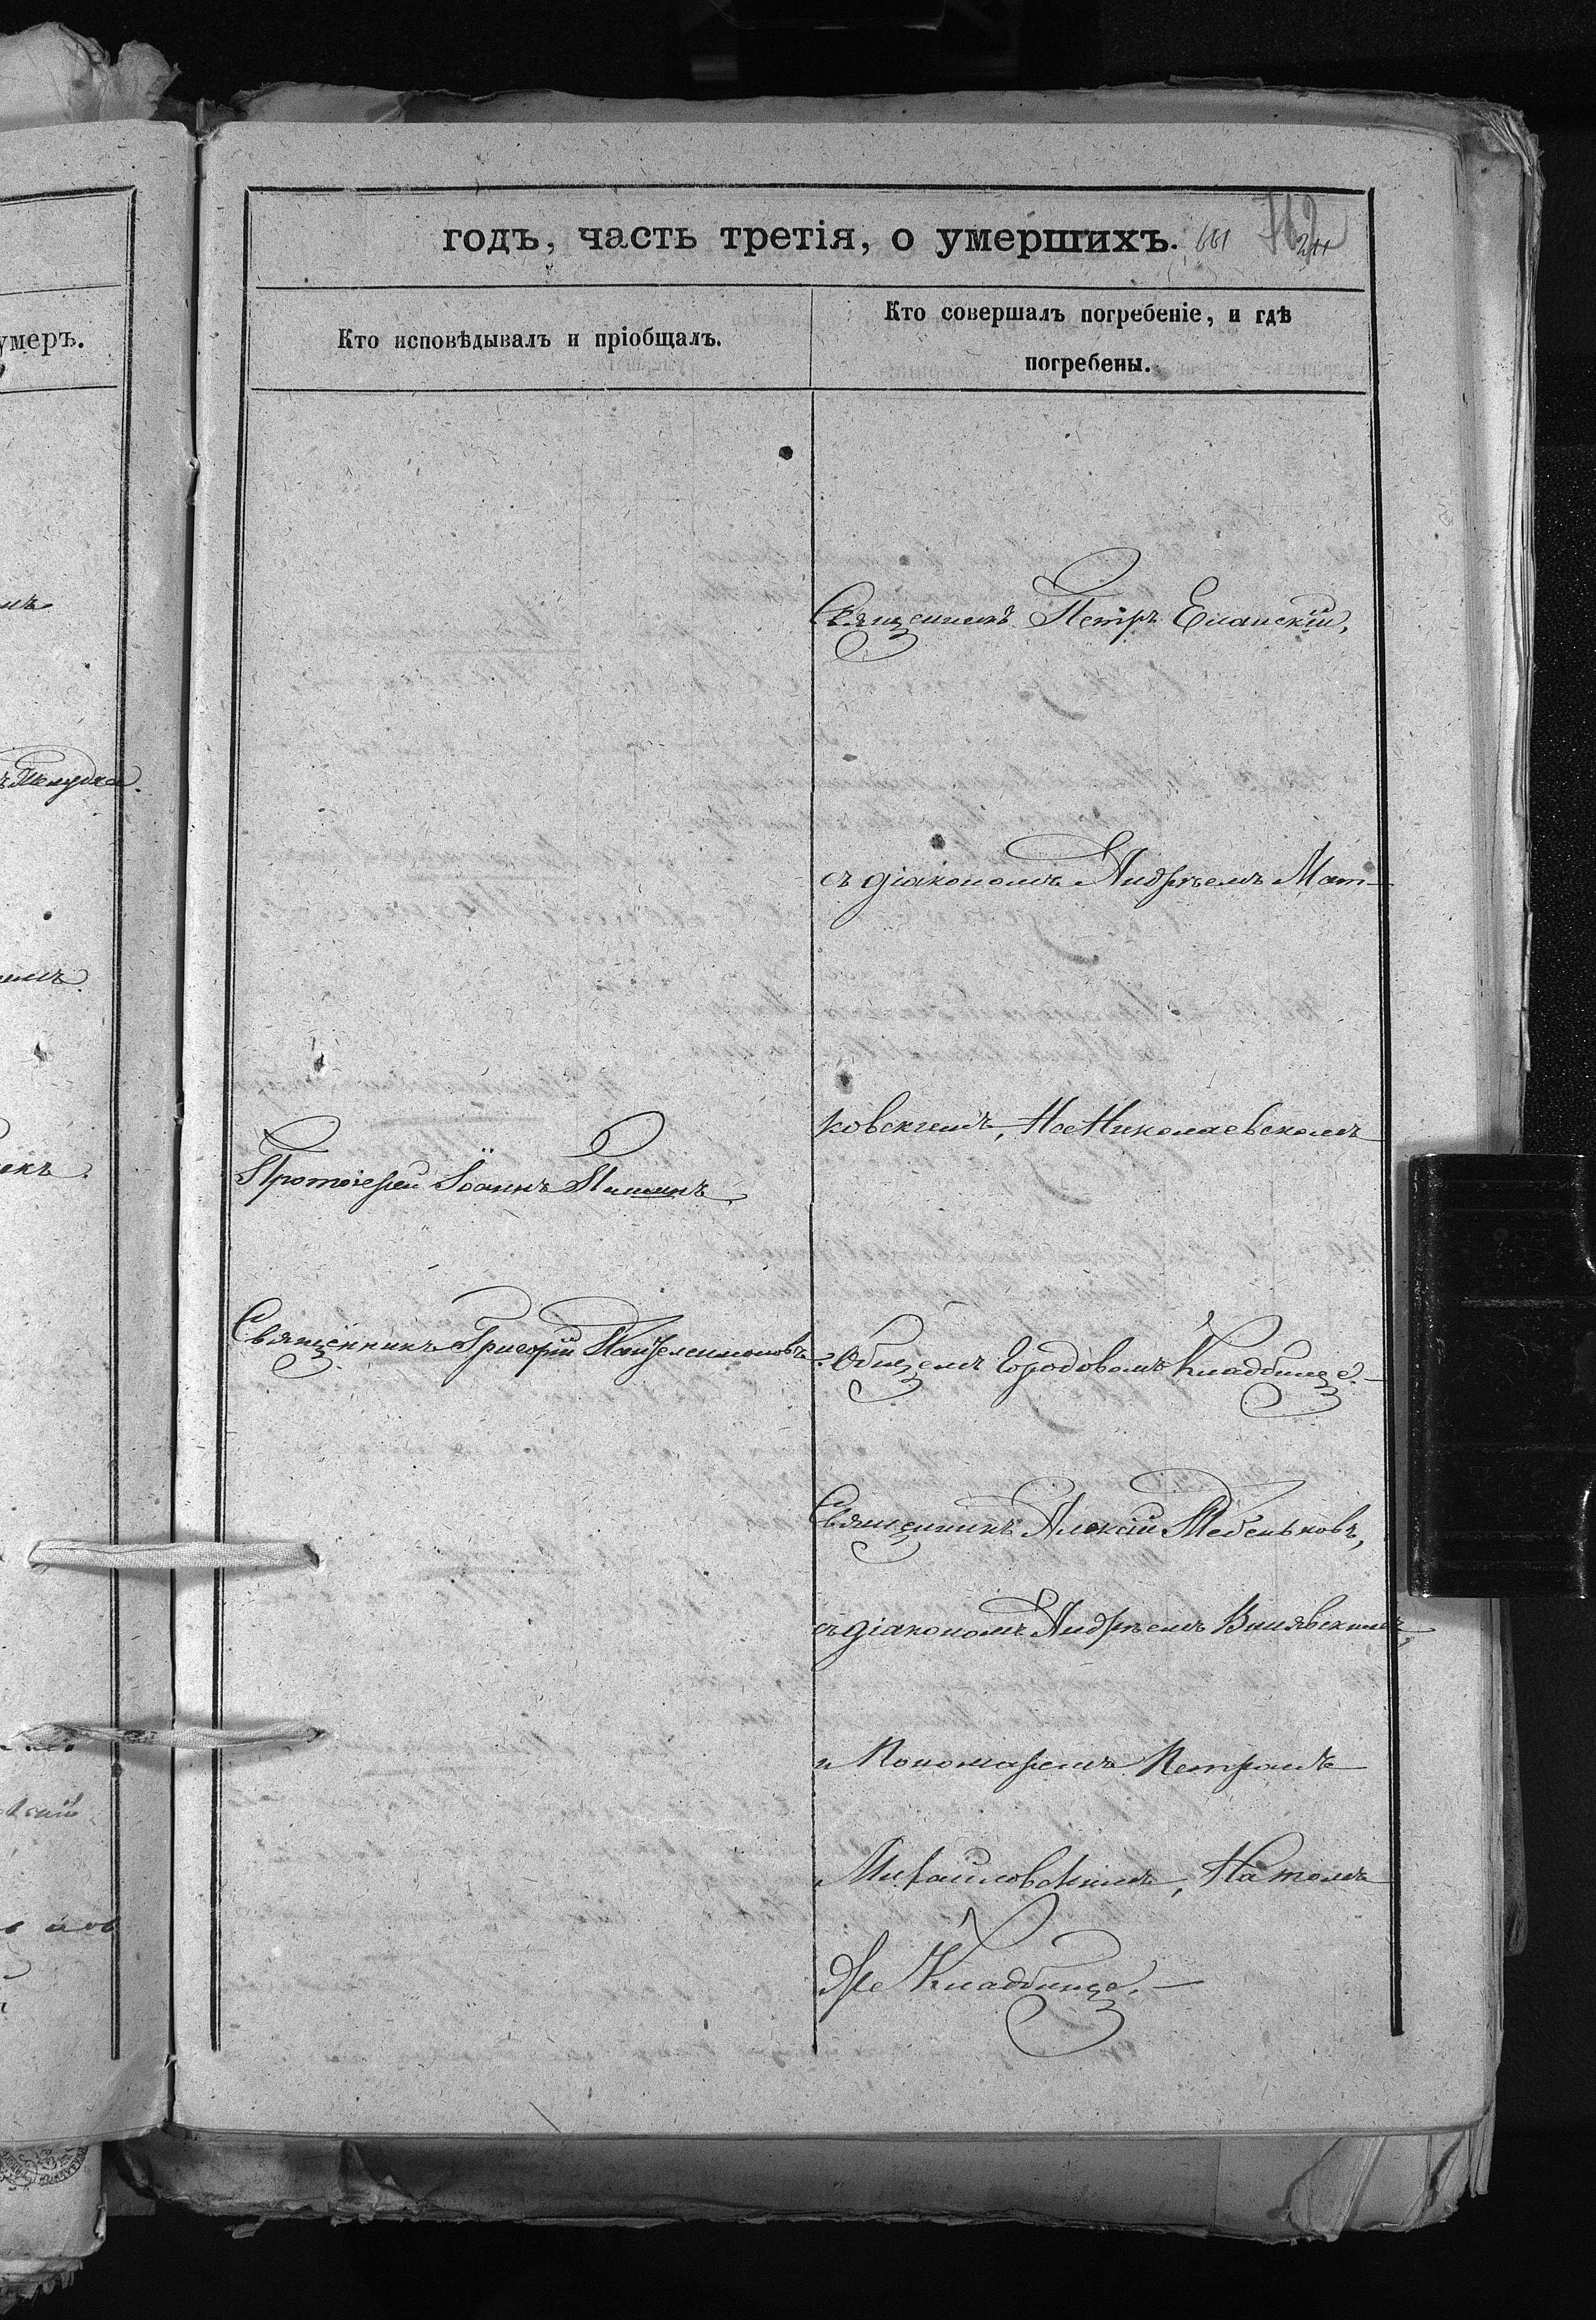 годъ, часть третія, о умершихъ. 661
Кто исповѣдывалъ и пріобщалъ.
Кто совершалъ погребеніе, и гдѣ
погребены.
умеръ.
Протоіерей Іоаннъ
Священникъ Григорій Пантелеимоновъ
Священникъ Петръ Еланскій,
съ діакономъ Андреемъ Мат-
ковскимъ, На Николаевскомъ
Общемъ Городовомъ Кладбище.
Священникъ Алексій Тебеньковъ,
съ діакономъ Андреемъ
и Пономаремъ Петромъ
Михаиловскимъ, На томъ
же Кладбище.